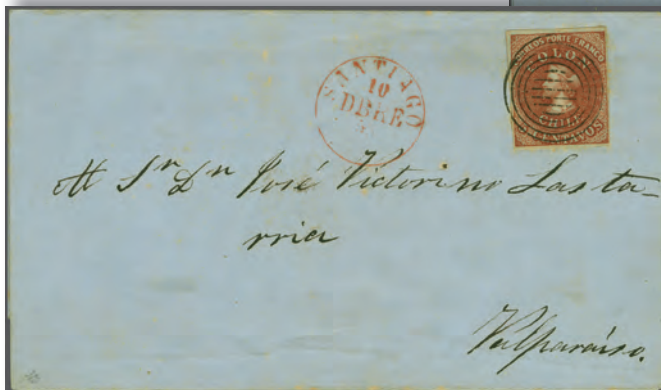 SANTIAGO
10
DBRE
CORREOS PORTE FRANCO
COLON
CHILE
CENTAVOS
Al Sr Dn José Victorino Lasta-
rria
Valparaíso.